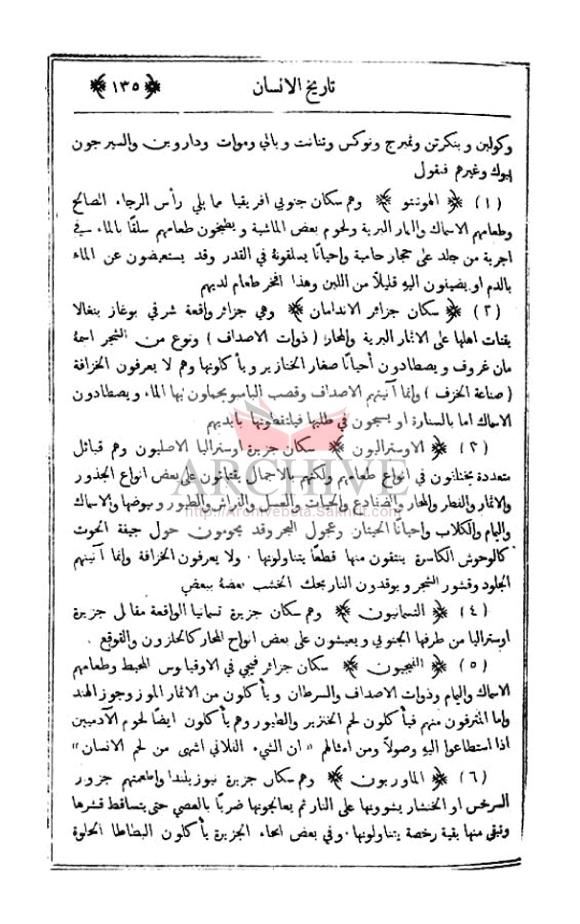 ﴿ ١٣٥ ﴾ تاريخ الانسان
وكولبن وبنكرتن وثمبرج ونوكس وتنانت وبالي وموات وداروين والسير جون
لبوك وغيرهم فنقول
(١) ﴿ الهوتنتو ﴾ وهم سكان جنوبي افريقيا مما يلي رأس الرجاء الصالح
وطعامهم الاسماك والثمار البرية ولحوم بعض الماشية ويطبخون طعامهم سلقًا بالماء في
اجربة من جلد على حجار حامية واحيانًا يسلقونة في القدر وقد يستعيضون عن الماء
بالدم او يضيفون اليهِ قليلًا من اللبن وهذا افخر طعام لديهم
(٢) ﴿ سكان جزائر الاندامان ﴾ وهي جزائر واقعة شرقي بوغاز بنغالا
يقتات اهلها على الاثمار البرية والمحار (ذوات الاصداف) ونوع من الشجر اسمهُ
مان غروف ويصطادون أحيانًا صغار الخنازير ويأكلونها وهم لا يعرفون الخزافة
(صناعة الخزف) وانما آنيتهم الاصداف وقصب البامبو يحملون بها الماء ويصطادون
الاسماك اما بالسنارة او يسبحون في طلبها فيلتقطونها بايديهم
(٣) ﴿ الاوستراليون ﴾ سكان جزيرة اوستراليا الاصليون وهم قبائل
متعددة يختلفون في انواع طعامهم ولكنهم بالاجمال يقتاتون على بعض انواع الجذور
والاثمار والفطر والمحار والضفادع والحيات والعسل والفراش والطيور وبيوضها والاسماك
واليام والكلاب واحيانًا الحيتان وعجول البحر وقد يحومون حول جيفة الحوت
كالوحوش الكاسرة ينتقون منها قطعًا يتناولونها . ولا يعرفون الخزافة وانما آنيتهم
الجلود وقشور الشجر ويوقدون النار بحك الخشب بعضهُ ببعض
(٤) ﴿ التسمانيون ﴾ وهم سكان جزيرة تسمانيا الواقعة مقابل جزيرة
اوستراليا من طرفها الجنوبي ويعيشون على بعض انواع المحار كالحلزون والقوقع .
(٥) ﴿ الفيجيون ﴾ سكان جزائر فيجي في الاوقيانوس المحيط وطعامهم
الاسماك واليام وذوات الاصداف والسرطان ويأكلون من الاثمار الموز وجوز الهند
واما المترفون منهم فيأكلون لحم الخنزير والطيور وهم يأكلون ايضًا لحوم الآدميين
اذا استطاعوا اليهِ وصولًا ومن امثالهم « ان الشيء الفلاني اشهى من لحم الانسان »
(٦) ﴿ الماوريون ﴾ وهم سكان جزيرة نيوزيلندا واطعمتهم جزور
السرخس او الخنشار يشوونها على النار ثم يعالجونها ضربًا بالعصي حتى يتساقط قشرها
وتبقى منها بقية رخصة يتناولونها . وفي بعض انحاء الجزيرة يأكلون البطاطا الحلوة
ARCHIVE
http://Archivebeta.Sakhrit.com